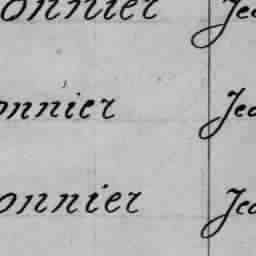 onnier Jea
onnier Jea
onnier Jea